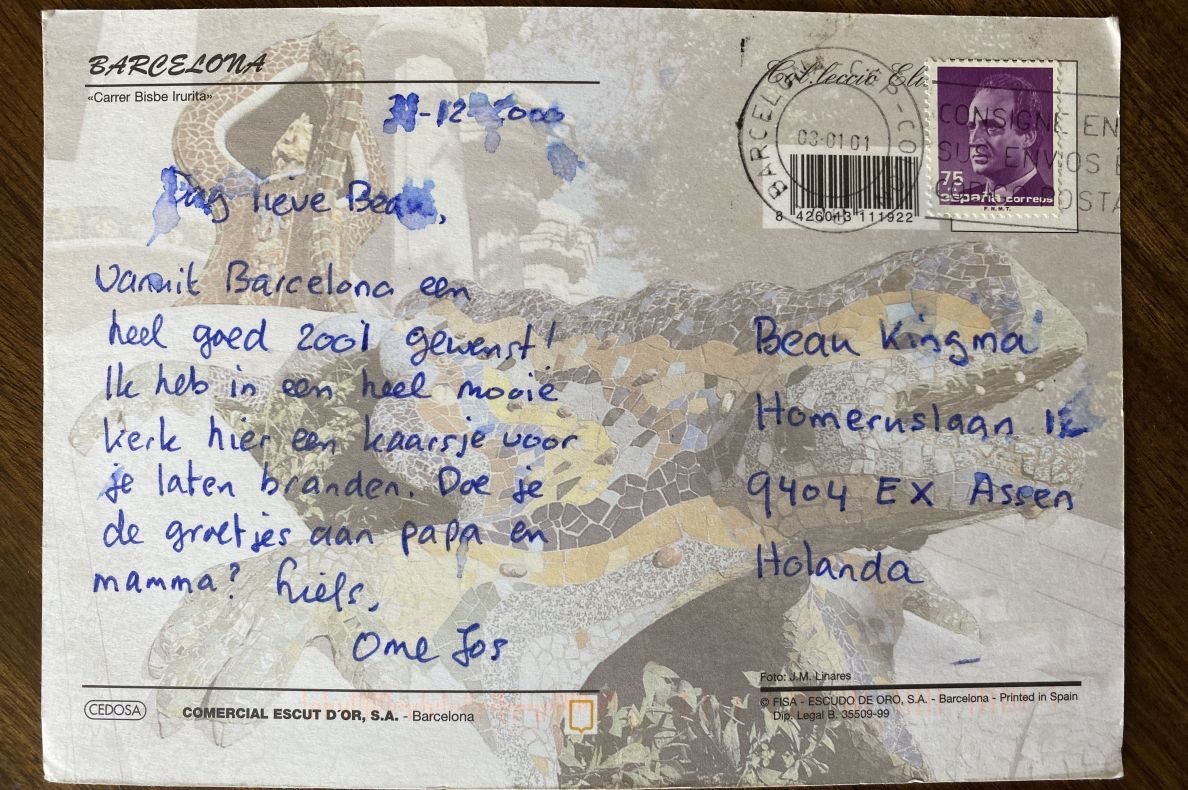 BARCELONA
«Carrer Bisbe Irurita»
-12-2000
Dag lieve Beau,
Vanuit Barcelona een
heel goed 2001 gewenst!
Ik heb in een heel mooie
kerk hier een kaarsje voor
je laten branden. Doe je
de groetjes aan papa en
mamma? Liefs,
Ome Jos
CEDOSA
COMERCIAL ESCUT D'OR, S.A. - Barcelona
Col·lecció
BARCELONA
03-01-01
CONSIGNE EN
SUS ENVIOS
POSTA
75
españa correos
F.N.M.T.
8 426013 111922
Beau Kingma
Homeruslaan
9404 EX Assen
Holanda
Foto: J.M. Linares
© FISA - ESCUDO DE ORO, S.A. - Barcelona - Printed in Spain
Dip. Legal B. 35509-99